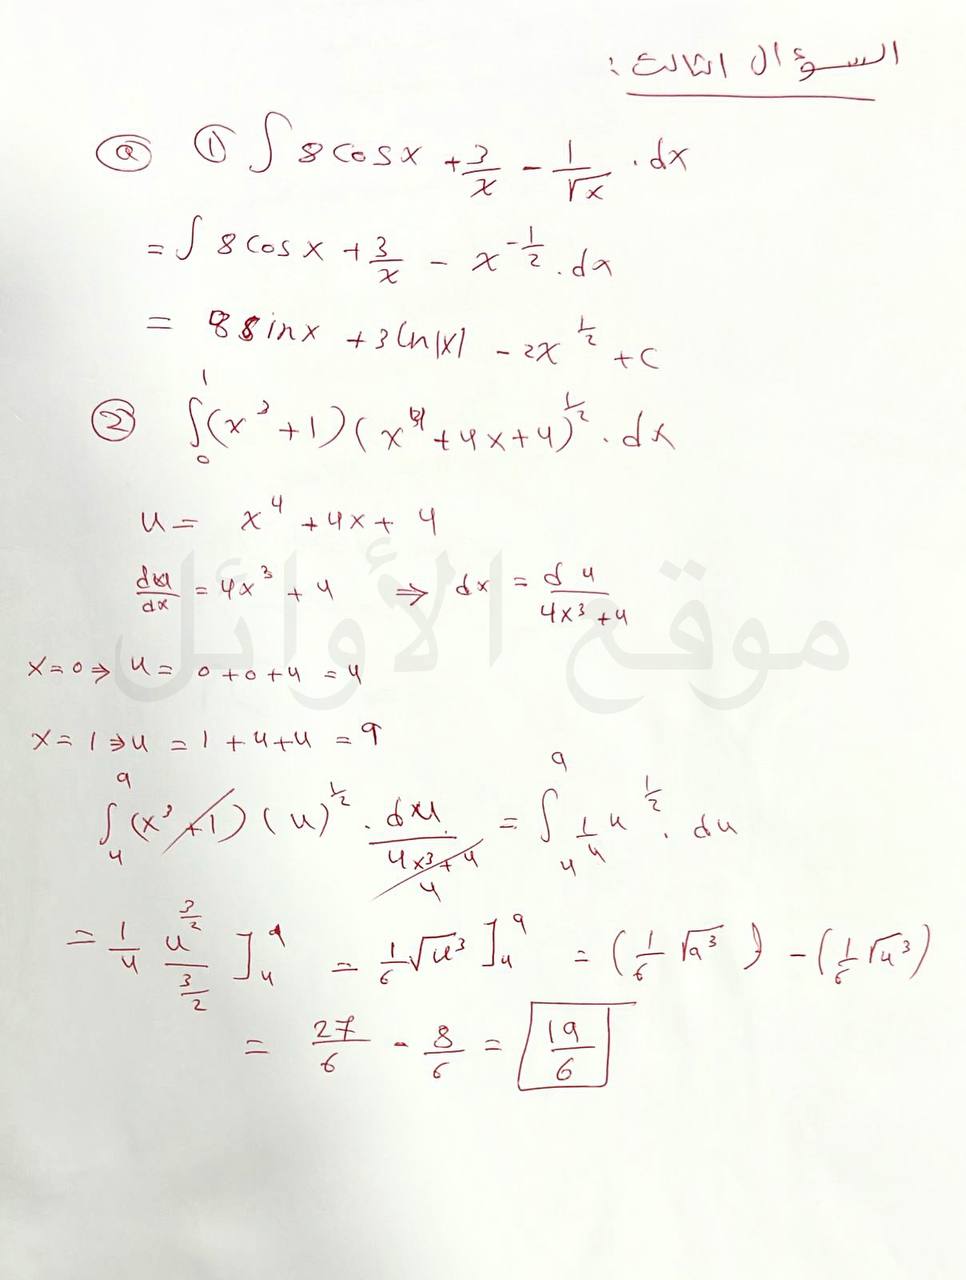 السؤال الثالث :
ⓐ ① ∫ 8 cos x + 3/x - 1/√x . dx
= ∫ 8 cos x + 3/x - x^(-1/2) . dx
= 8 sin x + 3 ln|x| - 2x^(1/2) + c
② ∫₀¹ (x³ + 1) (x⁴ + 4x + 4)^(1/2) . dx
u = x⁴ + 4x + 4
du/dx = 4x³ + 4 ⇒ dx = du/(4x³ + 4)
موقع الأوائل
x = 0 ⇒ u = 0 + 0 + 4 = 4
x = 1 ⇒ u = 1 + 4 + 4 = 9
∫₄⁹ (x³ + 1) (u)^(1/2) . du/(4x³ + 4) 4 = ∫₄⁹ 1/4 u^(1/2) . du
= 1/4 u^(3/2)/(3/2) ]₄⁹ = 1/6 √u³ ]₄⁹ = (1/6 √9³) - (1/6 √4³)
= 27/6 - 8/6 = 19/6